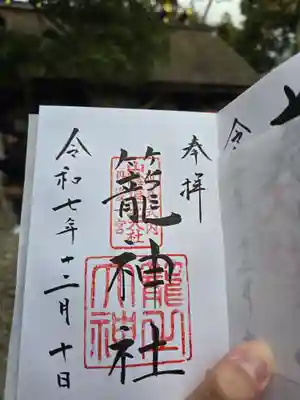 奉拝
籠神社
籠之大神
令和七年十二月十日
令